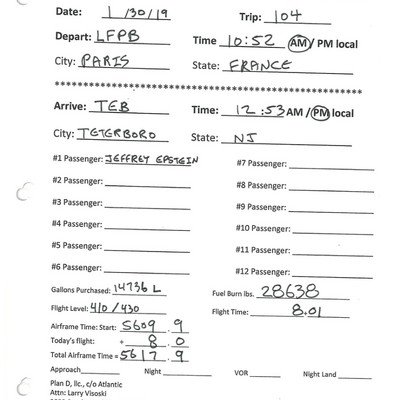 Date: 1/30/19 Trip: 104
Depart: LFPB Time 10:52 AM / PM local
City: PARIS State: FRANCE
************************************************************
Arrive: TEB Time: 12:53 AM / PM local
City: TETERBORO State: NJ
#1 Passenger: JEFFREY EPSTEIN #7 Passenger:
#2 Passenger: #8 Passenger:
#3 Passenger: #9 Passenger:
#4 Passenger: #10 Passenger:
#5 Passenger: #11 Passenger:
#6 Passenger: #12 Passenger:
Gallons Purchased: 14736 L Fuel Burn lbs. 28638
Flight Level: 410 / 430 Flight Time: 8.01
Airframe Time: Start: 5609.9
Today's flight: + 8.0
Total Airframe Time = 5617.9
Approach Night VOR Night Land
Plan D, llc., c/o Atlantic
Attn: Larry Visoski